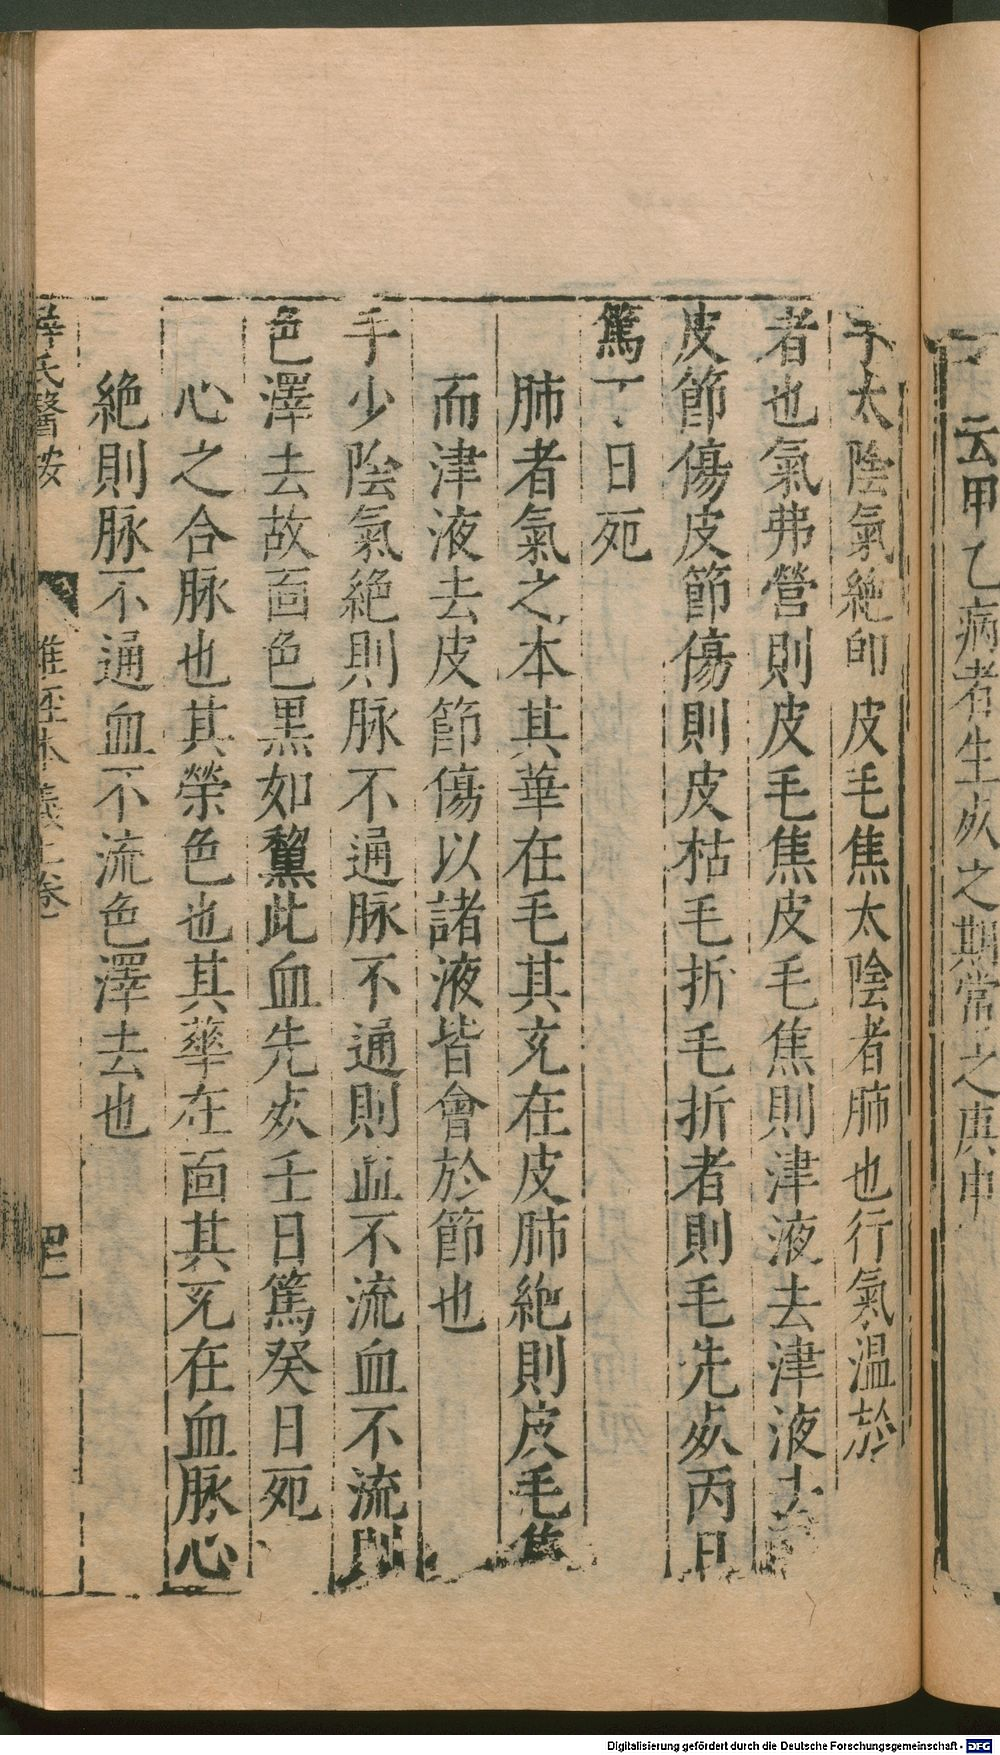 云甲乙病者生死之期當之庚申
手太陰氣絶即皮毛焦太陰者肺也行氣溫於
者也氣弗營則皮毛焦皮毛焦則津液去津液去
皮節傷皮節傷則皮枯毛折毛折者則毛先死丙日
篤丁日死
肺者氣之本其華在毛其充在皮肺絶則皮毛焦
而津液去皮節傷以諸液皆會於節也
手少陰氣絶則脉不通脉不通則血不流血不流則
色澤去故面色黑如黧此血先死壬日篤癸日死
心之合脉也其榮色也其華在面其充在血脉心
絶則脉不通血不流色澤去也
薛氏醫按
難經本義上卷
Digitalisierung gefördert durch die Deutsche Forschungsgemeinschaft - DFG